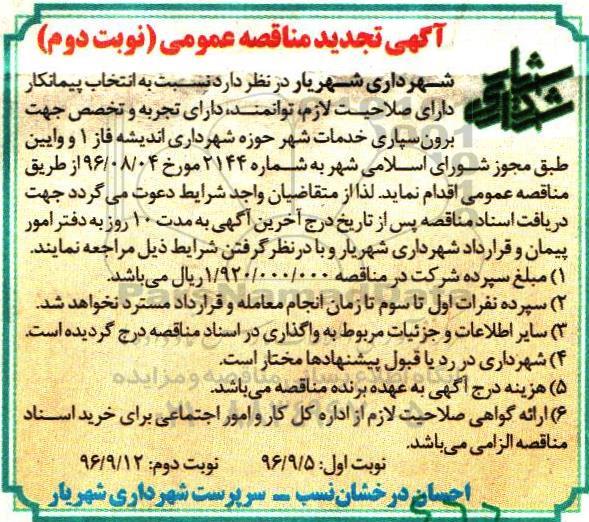 آگهی تجدید مناقصه عمومی (نوبت دوم)
شهرداری شهریار
شهرداری شهریار در نظر دارد نسبت به انتخاب پیمانکار
دارای صلاحیت لازم، توانمند، دارای تجربه و تخصص جهت
برون‌سپاری خدمات شهر حوزه شهرداری اندیشه فاز ۱ و وایین
طبق مجوز شورای اسلامی شهر به شماره ۲۱۴۴ مورخ ۹۶/۰۸/۰۴ از طریق
مناقصه عمومی اقدام نماید. لذا از متقاضیان واجد شرایط دعوت می‌گردد جهت
دریافت اسناد مناقصه پس از تاریخ درج آخرین آگهی به مدت ۱۰ روز به دفتر امور
پیمان و قرارداد شهرداری شهریار و با در نظر گرفتن شرایط ذیل مراجعه نمایند.
۱) مبلغ سپرده شرکت در مناقصه ۱/۹۲۰/۰۰۰/۰۰۰ ریال می‌باشد.
۲) سپرده نفرات اول تا سوم تا زمان انجام معامله و قرارداد مسترد نخواهد شد.
۳) سایر اطلاعات و جزئیات مربوط به واگذاری در اسناد مناقصه درج گردیده است.
۴) شهرداری در رد یا قبول پیشنهادها مختار است.
۵) هزینه درج آگهی به عهده برنده مناقصه می‌باشد.
۶) ارائه گواهی صلاحیت لازم از اداره کل کار و امور اجتماعی برای خرید اسناد
مناقصه الزامی می‌باشد.
نوبت اول: ۹۶/۹/۵ نوبت دوم: ۹۶/۹/۱۲
احسان درخشان‌نسب – سرپرست شهرداری شهریار